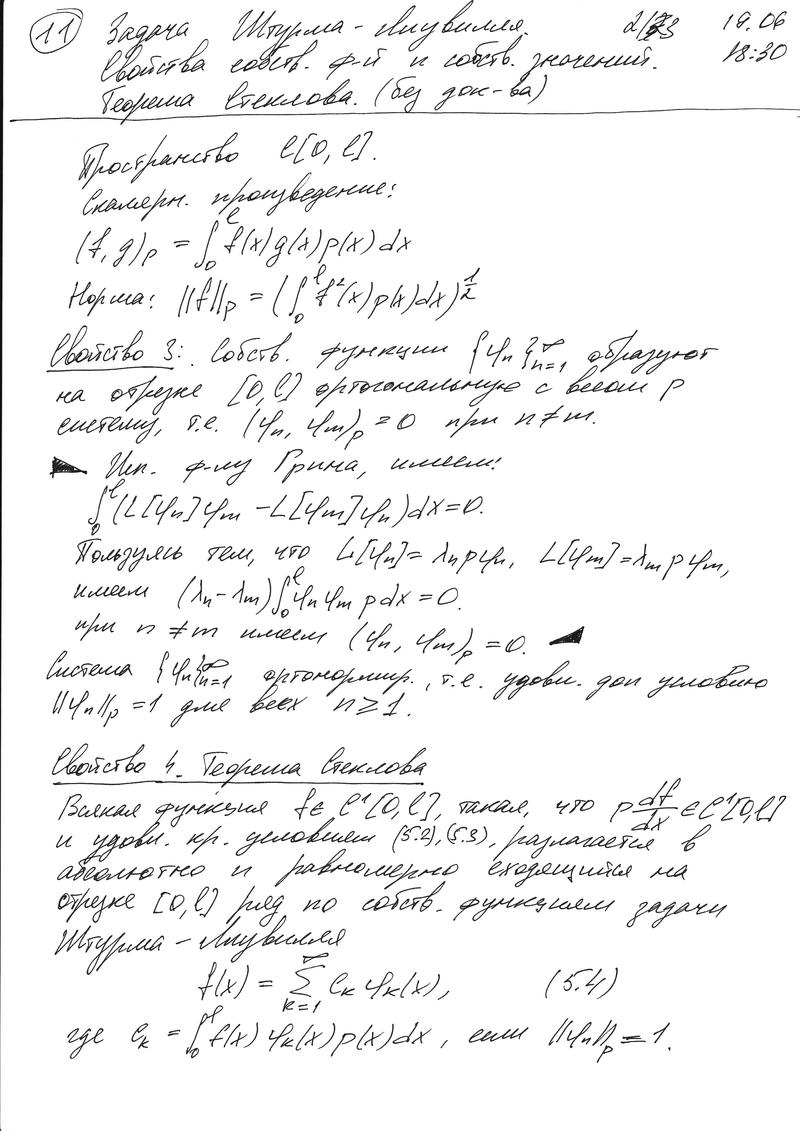 11 Задача Штурма-Лиувилля. 19.06
Свойства собств. ф-й и собств. значений. 18:30
Теорема Стеклова. (без док-ва)
Пространство C[0, l].
Скалярн. произведение:
(f, g)_ρ = ∫_0^l f(x)g(x)ρ(x)dx
Норма: ||f||_ρ = (∫_0^l f²(x)ρ(x)dx)^{1/2}
Свойство 3: Собств. функции {φ_n}_{n=1}^∞ образуют
на отрезке [0, l] ортогональную с весом ρ
систему, т.е. (φ_n, φ_m)_ρ = 0 при n ≠ m.
Исп. ф-лу Грина, имеем:
∫_0^l (L[φ_n]φ_m - L[φ_m]φ_n)dx = 0.
Пользуясь тем, что L[φ_n] = λ_n ρ φ_n, L[φ_m] = λ_m ρ φ_m,
имеем (λ_n - λ_m)∫_0^l φ_n φ_m ρ dx = 0.
при n ≠ m имеем (φ_n, φ_m)_ρ = 0.
Система {φ_n}_{n=1}^∞ ортонормир., т.е. удовл. доп условию
||φ_n||_ρ = 1 для всех n ≥ 1.
Свойство 4. Теорема Стеклова
Всякая функция f ∈ C¹[0, l], такая, что p df/dx ∈ C¹[0, l]
и удовл. кр. условиям (5.2), (5.3), разлагается в
абсолютно и равномерно сходящийся на
отрезке [0, l] ряд по собств. функциям задачи
Штурма-Лиувилля
f(x) = ∑_{k=1}^∞ c_k φ_k(x), (5.4)
где c_k = ∫_0^l f(x) φ_k(x) ρ(x) dx, если ||φ_n||_ρ = 1.